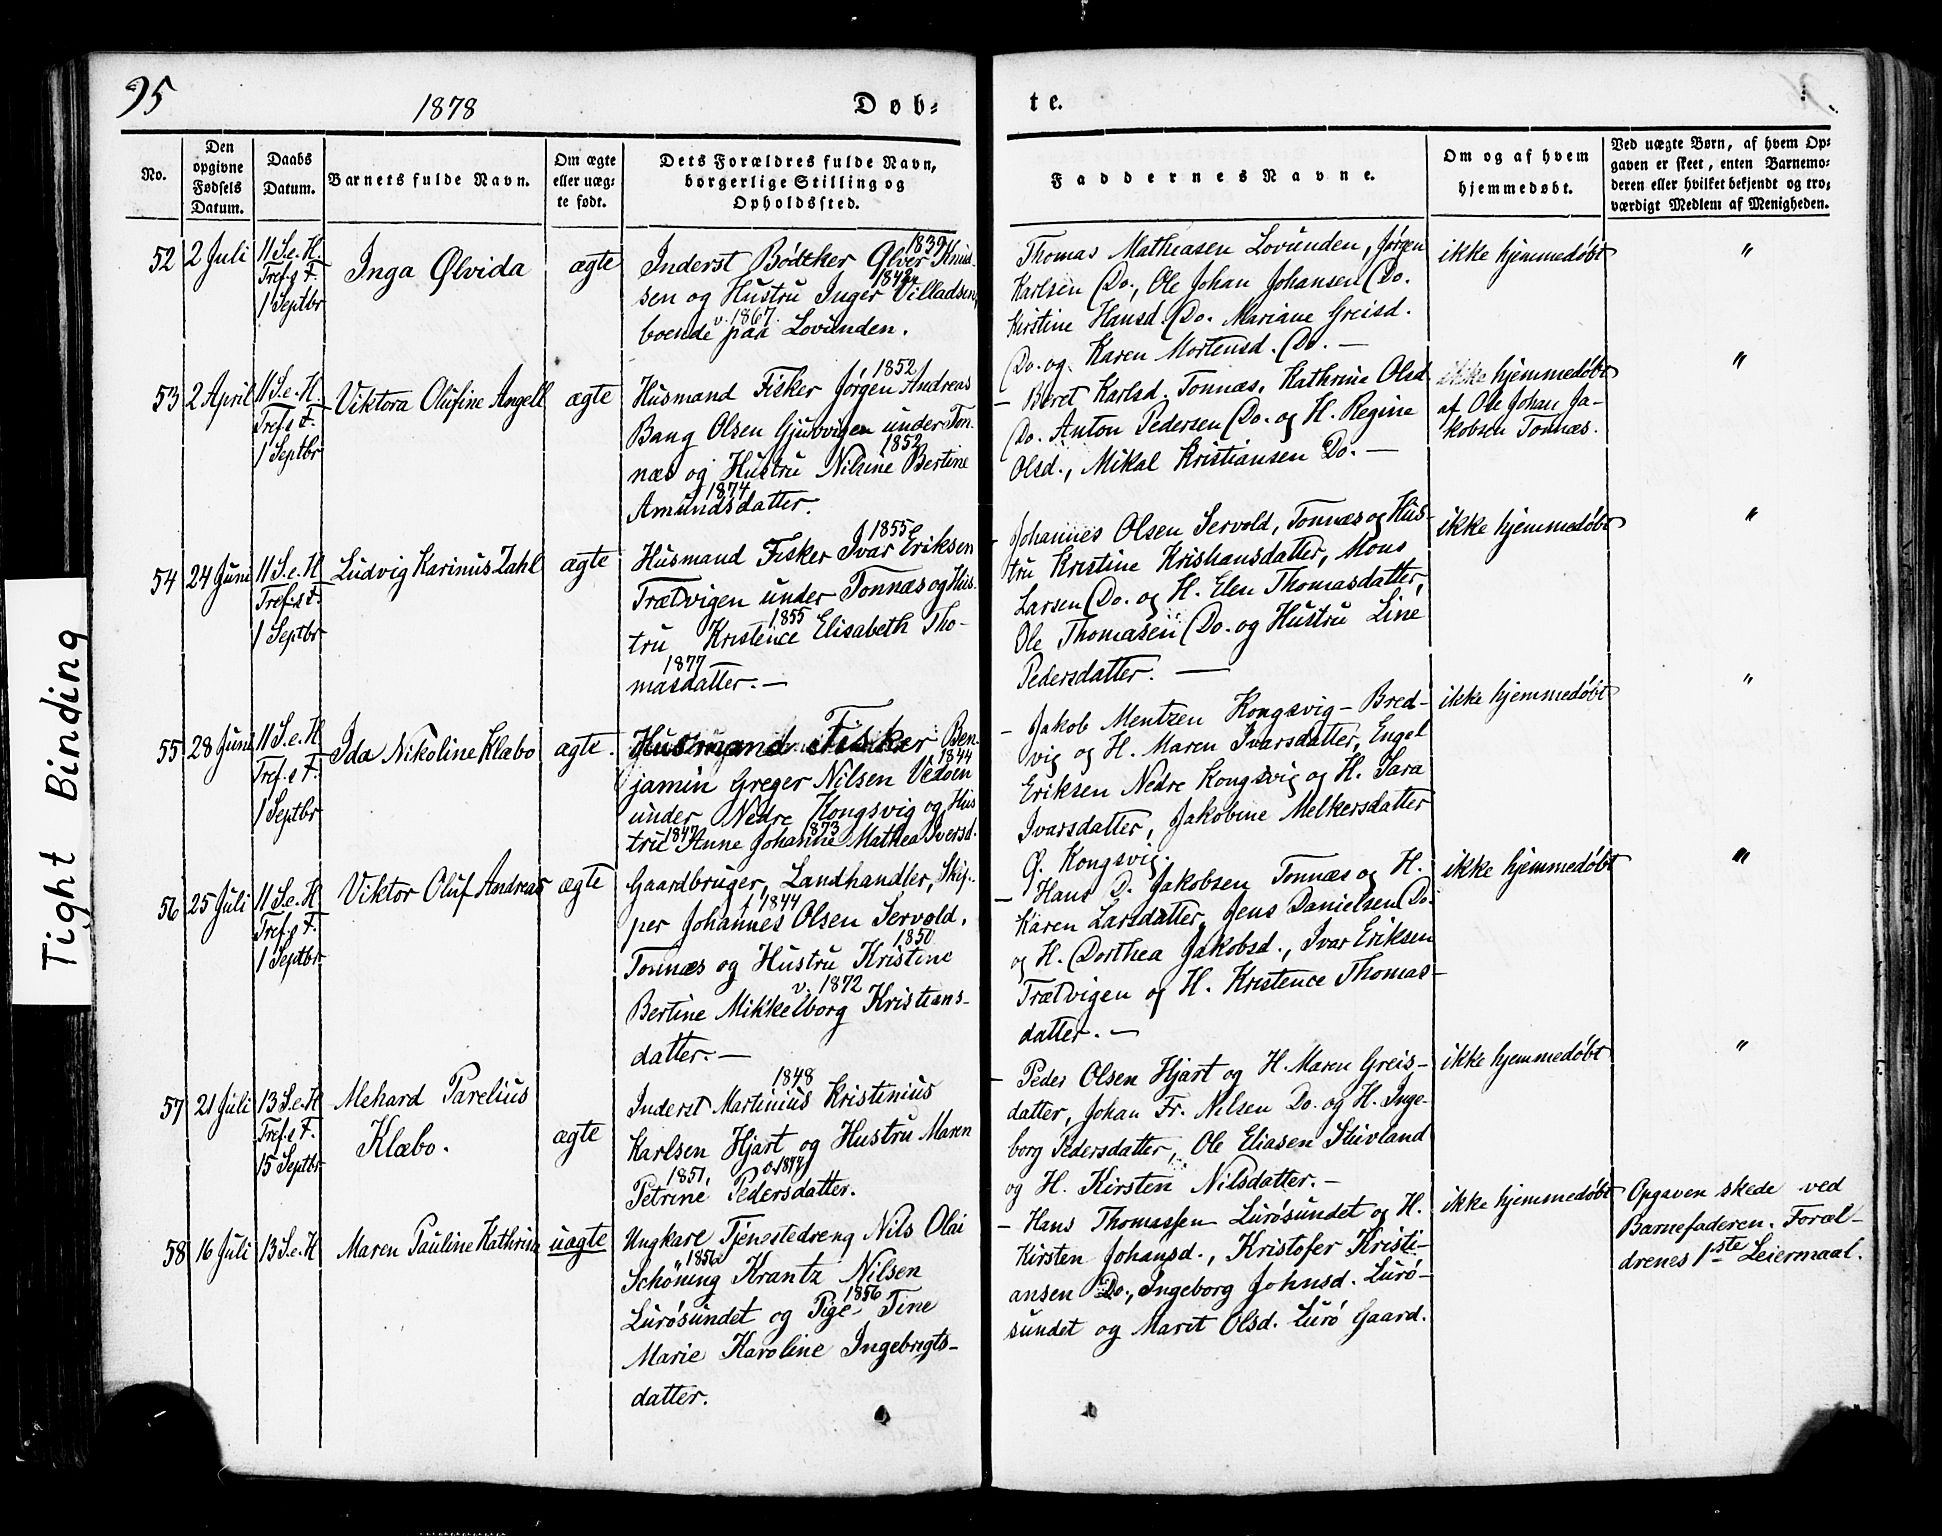 95
1878
Døb=
te.
No.
Den opgivne Fødsels Datum.
Daabs Datum.
Barnets fulde Navn.
Om ægte eller uæg- te født.
Dets Forældres fulde Navn, borgerlige Stilling og Opholdssted.
Faddernes Navne.
Om og af hvem hjemmedøbt.
Ved uægte Børn, af hvem Op- gaven er skeet, enten Barnemo- deren eller hvilket bekjendt og tro- værdigt Medlem af Menigheden.
52
2 Juli
11 S. e. H.
Tref.s F.
1 Septbr
Inga Ølvida
ægte
1839
Inderst Bødtker Olver Knud-
1842
sen og Hustru Inger Villadsen,
v. 1867.
boende paa Lovunden.
Thomas Mathiasen Lovunden, Jørgen
Karlsen Do., Ole Johan Johansen Do.
Kirstine Hansd. Do. Mariane Greisd.
Do. og Karen Mortensd. Do. —
ikke hjemmedøbt
"
53
2 April
11 S. e. H.
Tref.s F.
1 Septbr
Viktora Olufine Angell
ægte
1852
Husmand Fisker Jørgen Andreas
Bang Olsen Gjurvigen under Ton-
1852
næs og Hustru Nilsine Bertine
1874
Amundsdatter.
— Beret Karlsd. Tonnæs, Kathrine Olsd.
Do. Anton Pedersen Do. og H. Regine
Olsd., Mikal Kristiansen Do. —
ikke hjemmedøbt
af Ole Johan Ja-
kobsen Tonnæs.
"
54
24 Juni
11 S. e. H.
Tref.s F.
1 Septbr
Ludvig Karinus Zahl
ægte
1855
Husmand Fisker Ivar Eriksen
Trætvigen under Tonnæs og Hus-
1855
tru Kristence Elisabeth Tho-
1877
masdatter. —
- Johannes Olsen Servold, Tonnæs og Hus-
tru Kristine Kristiansdatter, Mons
Larsen Do. og H. Elen Thomasdatter,
Ole Thomasen Do. og Hustru Line
Pedersdatter. —
ikke hjemmedøbt
"
55
28 Juni
11 S. e. H.
Tref.s F.
1 Septbr
Ida Nikoline Klæbo
ægte.
Husmand Fisker Ben-
1844
jamin Greger Nilsen
under Nedre Kongsvig og Hus
1847 873
tru Anne Johanne Mathea Iversd.
- Jakob Mentzen Kongsvig - Bred-
vig og H. Maren Ivarsdatter, Engel
Eriksen Nedre Kongsvig og H. Sara
Ivarsdatter, Jakobine Melkersdatter
Ø. Kongsvig.
ikke hjemmedøbt
"
56
25 Juli
11 S. e. H
Tref.s F.
1 Septbr
Viktor Oluf Andreas
ægte
Gaardbruger, Landhandler, Skip-
f 1844
per Johannes Olsen Servold,
1850
Tonnæs og Hustru Kristine
v. 1872
Bertine Mikkelborg Kristians-
datter. —
— Hans D. Jakobsen Tonnæs og H.
Karen Larsdatter, Jens Danielsen Do.
og H. Dorthea Jakobsd., Ivar Eriksen
Trætvigen og H. Kristence Thomas-
datter. —
ikke hjemmedøbt
"
57
21 Juli
13 S. e. H
Tref.s F.
15 Septbr
Mehard Parelius
Klæbo.
ægte
1848
Inderst Martinius Kristinius
Karlsen Hjart og Hustru Maren
1851, v. 1877
Petrine Pedersdatter.
- Peder Olsen Hjart og H. Maren Greis-
datter, Johan Fr. Nilsen Do. og H. Inge-
borg Pedersdatter, Ole Eliasen Stuvland
og H. Kirsten Nilsdatter. —
ikke hjemmedøbt
"
58
16 Juli
13 S. e. H
Maren Pauline Kathrina
uægte
Ungkarl Tjenestedreng Nils Olai
1856
Schöning Krantz Nilsen
1856
Lurøsundet og Pige Tine
Marie Karoline Ingebrigts-
datter.
— Hans Thomassen Lurøsundet og H.
Kirsten Johansd., Kristofer Kristi-
ansen Do., Ingeborg Johnsd. Lurø-
sundet og Marit Olsd. Lurø Gaard.
ikke hjemmedøbt
Opgaven skede ved
Barnefaderen. Foræl-
drenes 1ste Leiermaal.
Tight Binding